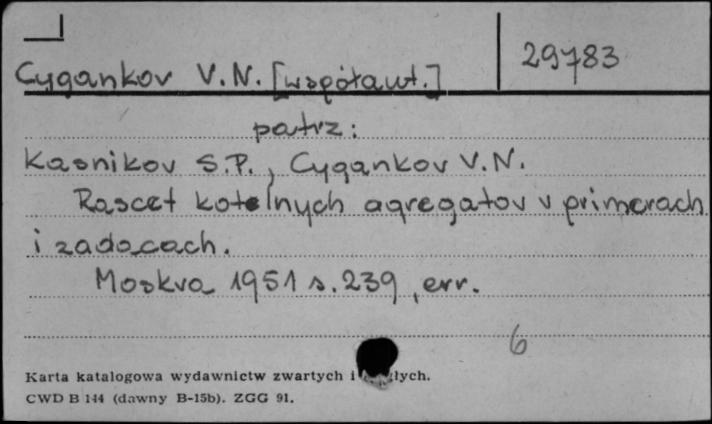 29783
Cygankov V.N. [współaut.]
patrz:
Kasnikov S.P., Cygankov V.N.
Rascet kotelnych agregatov v primerach
i zadacach.
Moskva 1951 s.239, err.
6
Karta katalogowa wydawnictw zwartych i
CWD B 144 (dawny B-15b). ZGG 91.